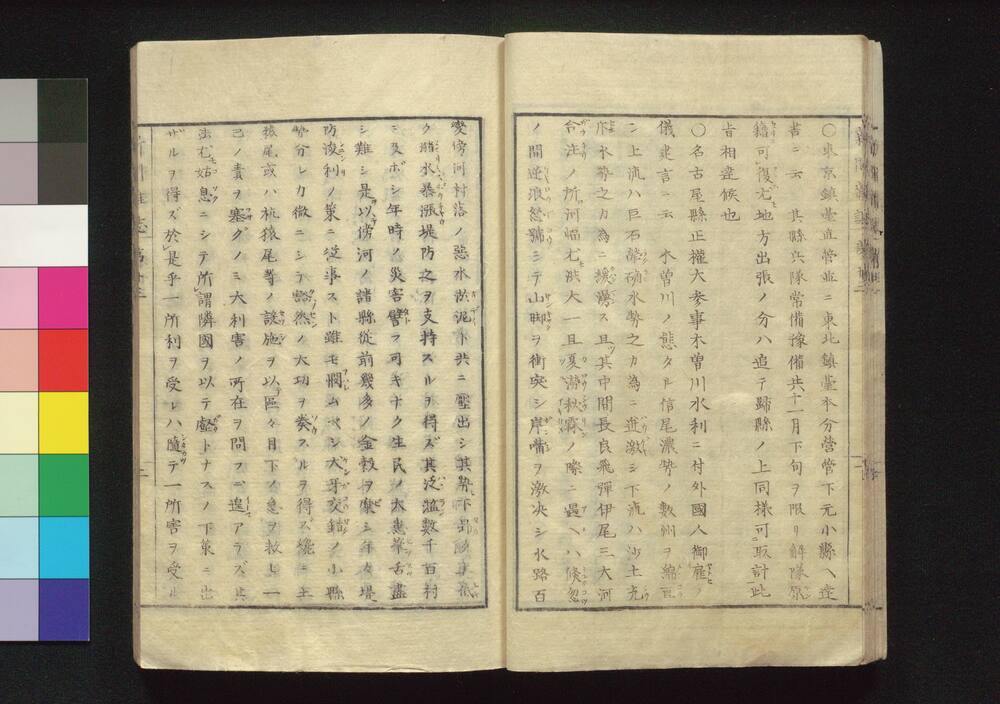 〇東京鎮臺直管並ニ東北鎮臺本分營管下元小縣ヘ達
書ニ云 其縣兵隊常備豫備共十一月下旬ヲ限リ解隊原
籍可復尤地方出張ノ分ハ追テ歸縣ノ上同様可取計此
旨相達候也
〇名古屋縣正權大参事木曽川水利ニ付外國人御雇ノ
儀建言ニ云 木曽川ノ態タル信尾濃勢ノ數州ヲ綿亘
シ上流ハ巨石 水勢之カ為ニ逆激シ下流ハ沙土充
水勢之カ為ニ ス且其中間長良飛彈伊尾三大河
合注ノ所河幅尤濶大一旦夏潦秋霖ノ際ニ遇ヘハ倏忽
ノ間逆浪怒號シテ山脚ヲ衝突シ岸嘴ヲ激决シ水路百
變傍河村落ノ惡水淤泥ト共ニ壅出シ其勢
ク潴水暴漲堤防之ヲ支持スルヲ得ズ其泛濫數千百村
ニ及ボシ年時ノ災害譬フ可キナク生民ノ大患筆舌盡
シ難シ是以傍河ノ諸縣從前幾多ノ金穀ヲ糜シ年々堤
防浚利ノ策ニ從事スト雖モ憫ムベシ犬牙交錯ノ小縣
勢分レカ微ニシテ豁然ノ大功ヲ奏スルヲ得ズ纔ニ土
猿尾或ハ杭猿尾等ノ設施ヲ以區々目下ノ急ヲ救ヒ一
己ノ責ヲ塞グノミ大利害ノ所在ヲ問フニ遑アラズ其
法尤姑息ニシテ所謂隣國ヲ以テ壑トナスノ下策ニ出
ザルヲ得ズ於是乎一所利ヲ受レハ隨テ一所害ヲ受ル